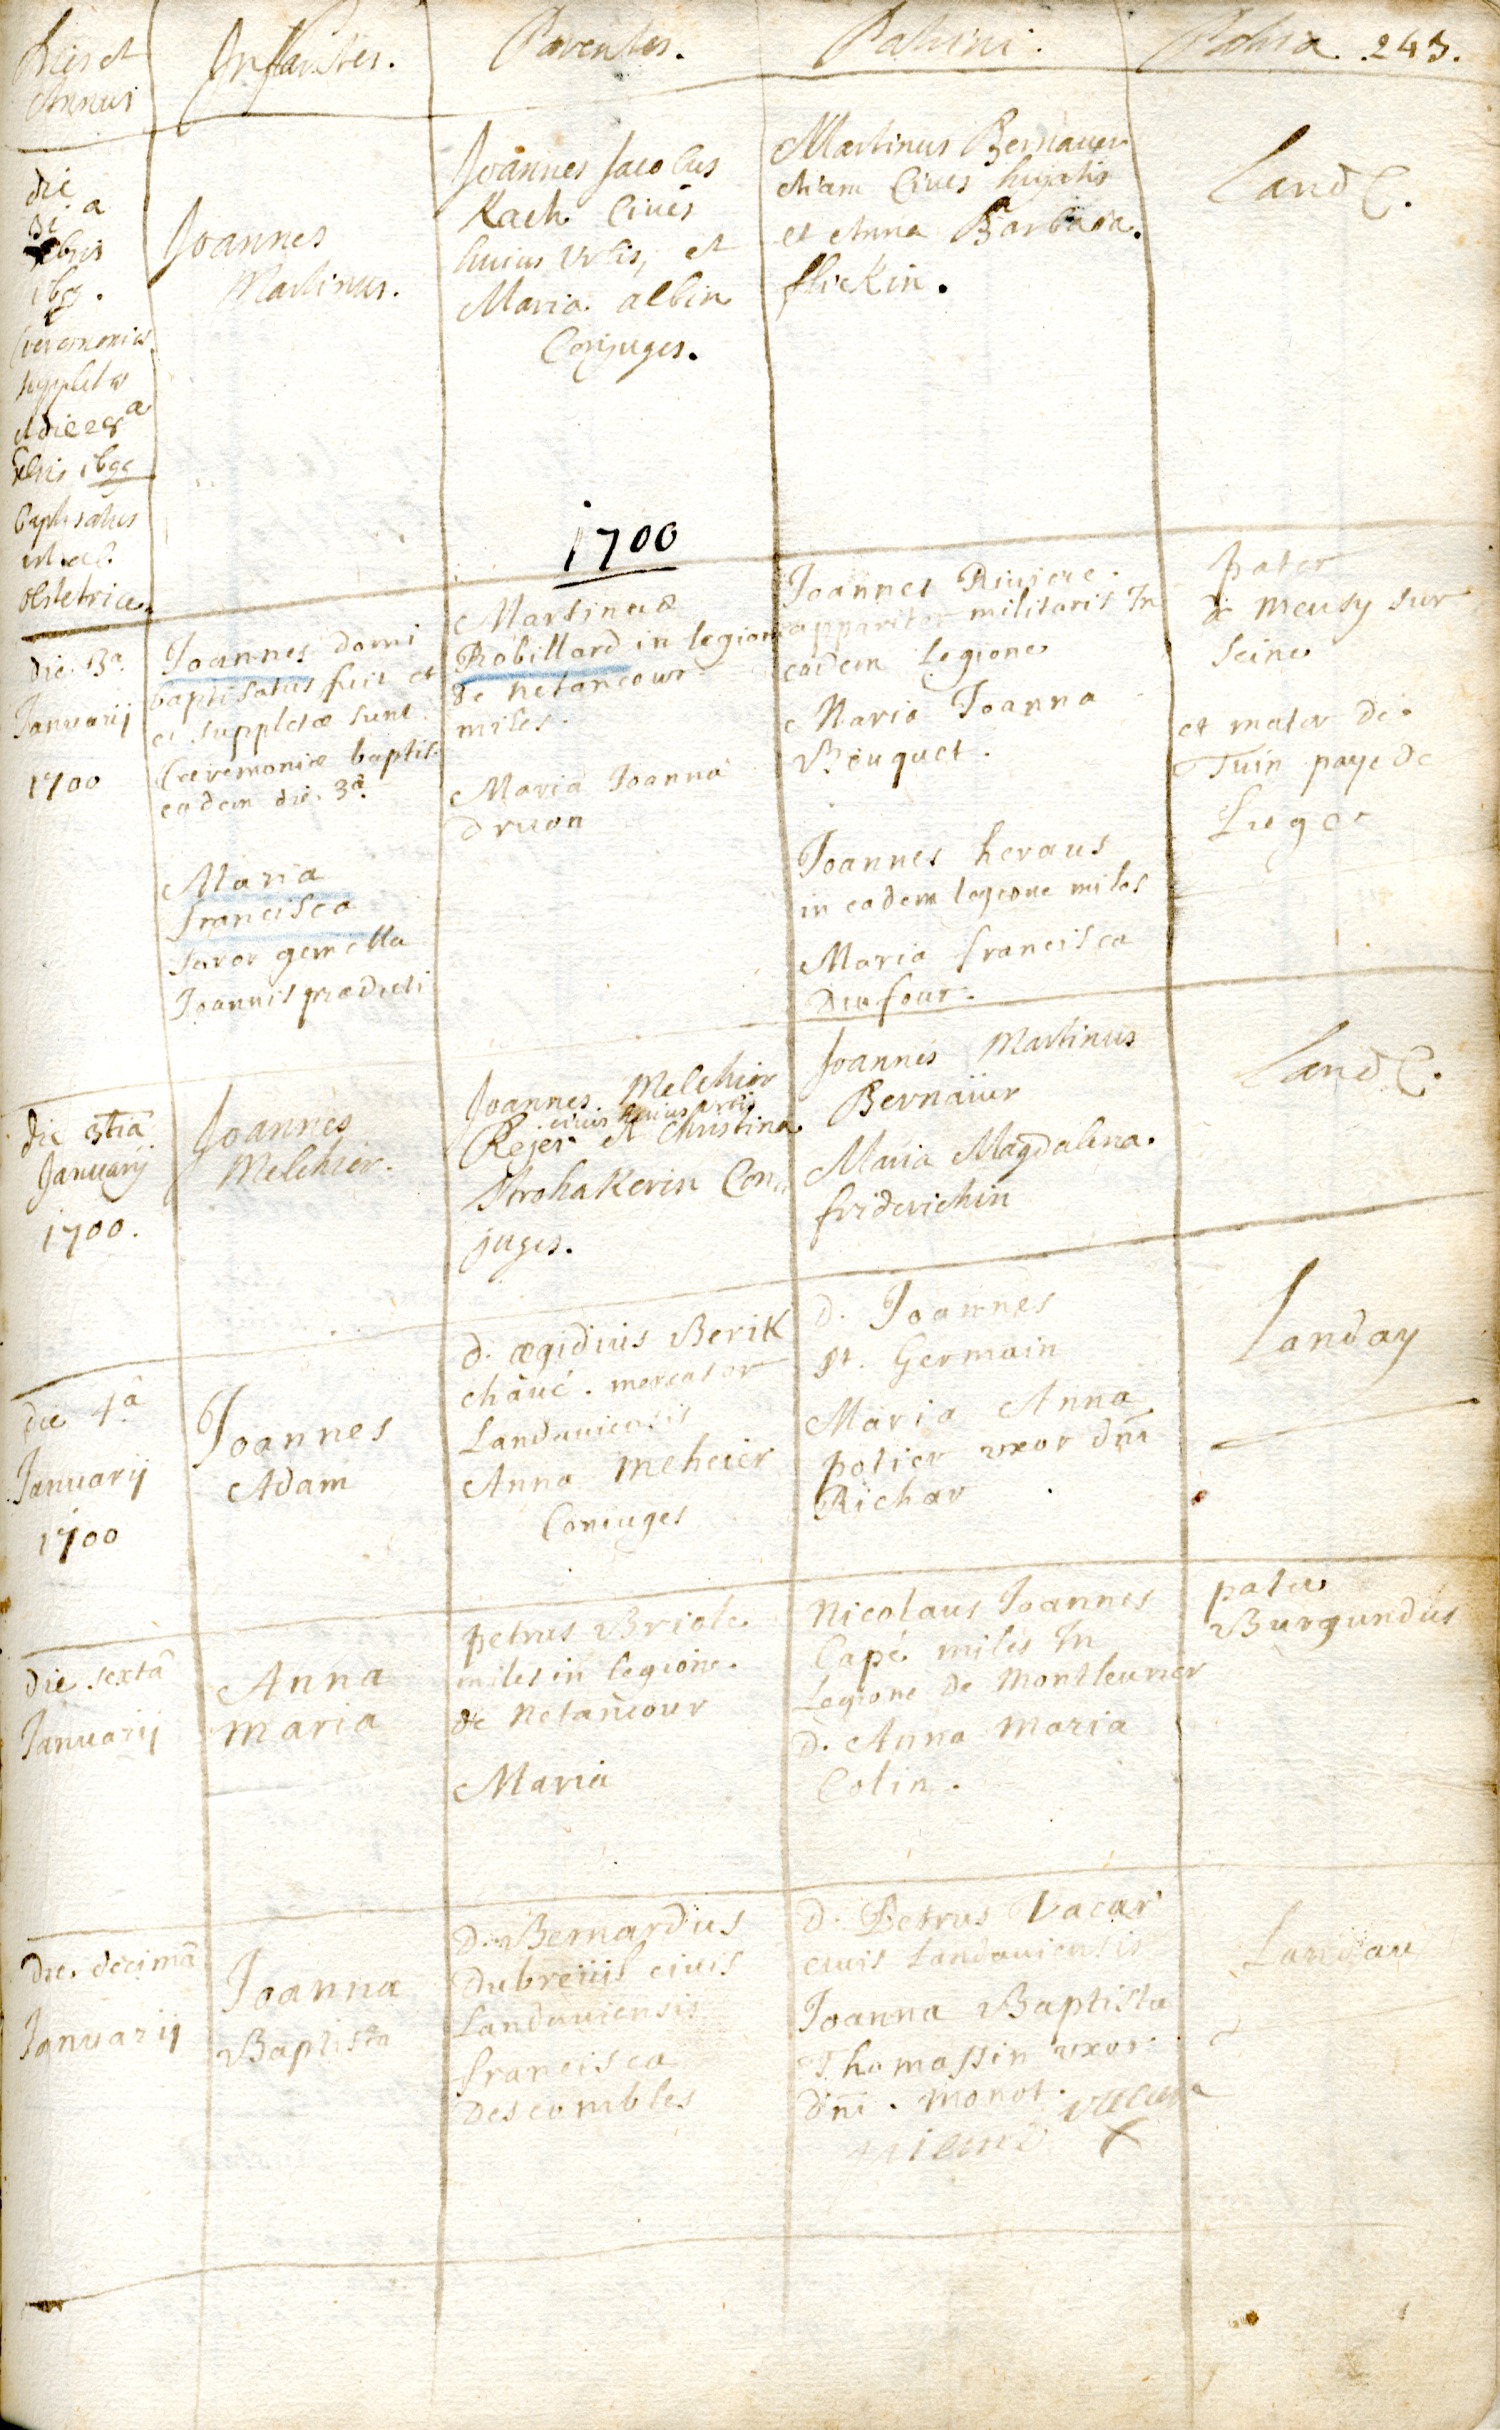 Dies et
Annus
Infantes.
Parentes.
Patrini.
Patria. 243.
die
31 a
xbris
1699.
Ceremoniae
suppletae
et die 28 a
xbris 1699
baptisatus
est ab
obstetrice.
Joannes
Martinus.
Joannes Jacobus
Kach Civis
huius Urbis, et
Maria albin
Conjuges.
Martinus Bernauer
etiam Cives hujatis
et Anna Barbara.
flickin.
Land C.
1700
die 3a.
Januarij
1700
Joannes domi
baptisatus fuit et
ei suppletae sunt
Caeremoniae baptis.
eadem die. 3a.
Maria
francisca
soror gemella
Joannis praedicti
Martinus
Robillard in legione
de Netancour
miles.
Maria Joanna
druon
Joannes Riviere.
apparitor militaris In
eadem Legione
Maria Joanna
Bouquet.
Joannes heraus
in eadem legione miles
Maria francisca
Dufour.
pater
de Meusy sur
Seine
et mater de
Tuin paye de
Liege
die 3tiâ
Januarij
1700.
Joannes
Melchior.
Joannes Melchior
civis huius Urbis
Rejer et Christina
Strohakerin Con
juges.
Joannes Martinus
Bernauer
Maria Magdalena.
friderichin
Land C.
die 4â
Januarij
1700
Joannes
Adam
d. aegidius Berik
chaué. mercator
Landaviensis
Anna Meheier
Coniuges
d. Joannes
St. Germain
Maria Anna
potier uxor dni
Richar
Landay
die sextâ
Januarij
Anna
Maria
petrus Briole
miles in legione
de Netancour
Maria
Nicolaus Joannes
Capé miles In
Legione de Montleurier
D. Anna Maria
Colin.
pater
Burgundus
die decimâ
Januarij
Joanna
Baptista
D. Bernardus
Dubreüil civis
Landaviensis
francisca
Descombles
d. Petrus Vacar
civis Landaviensis
Joanna Baptista
Thomassin uxor
dni. Monot.
Landau